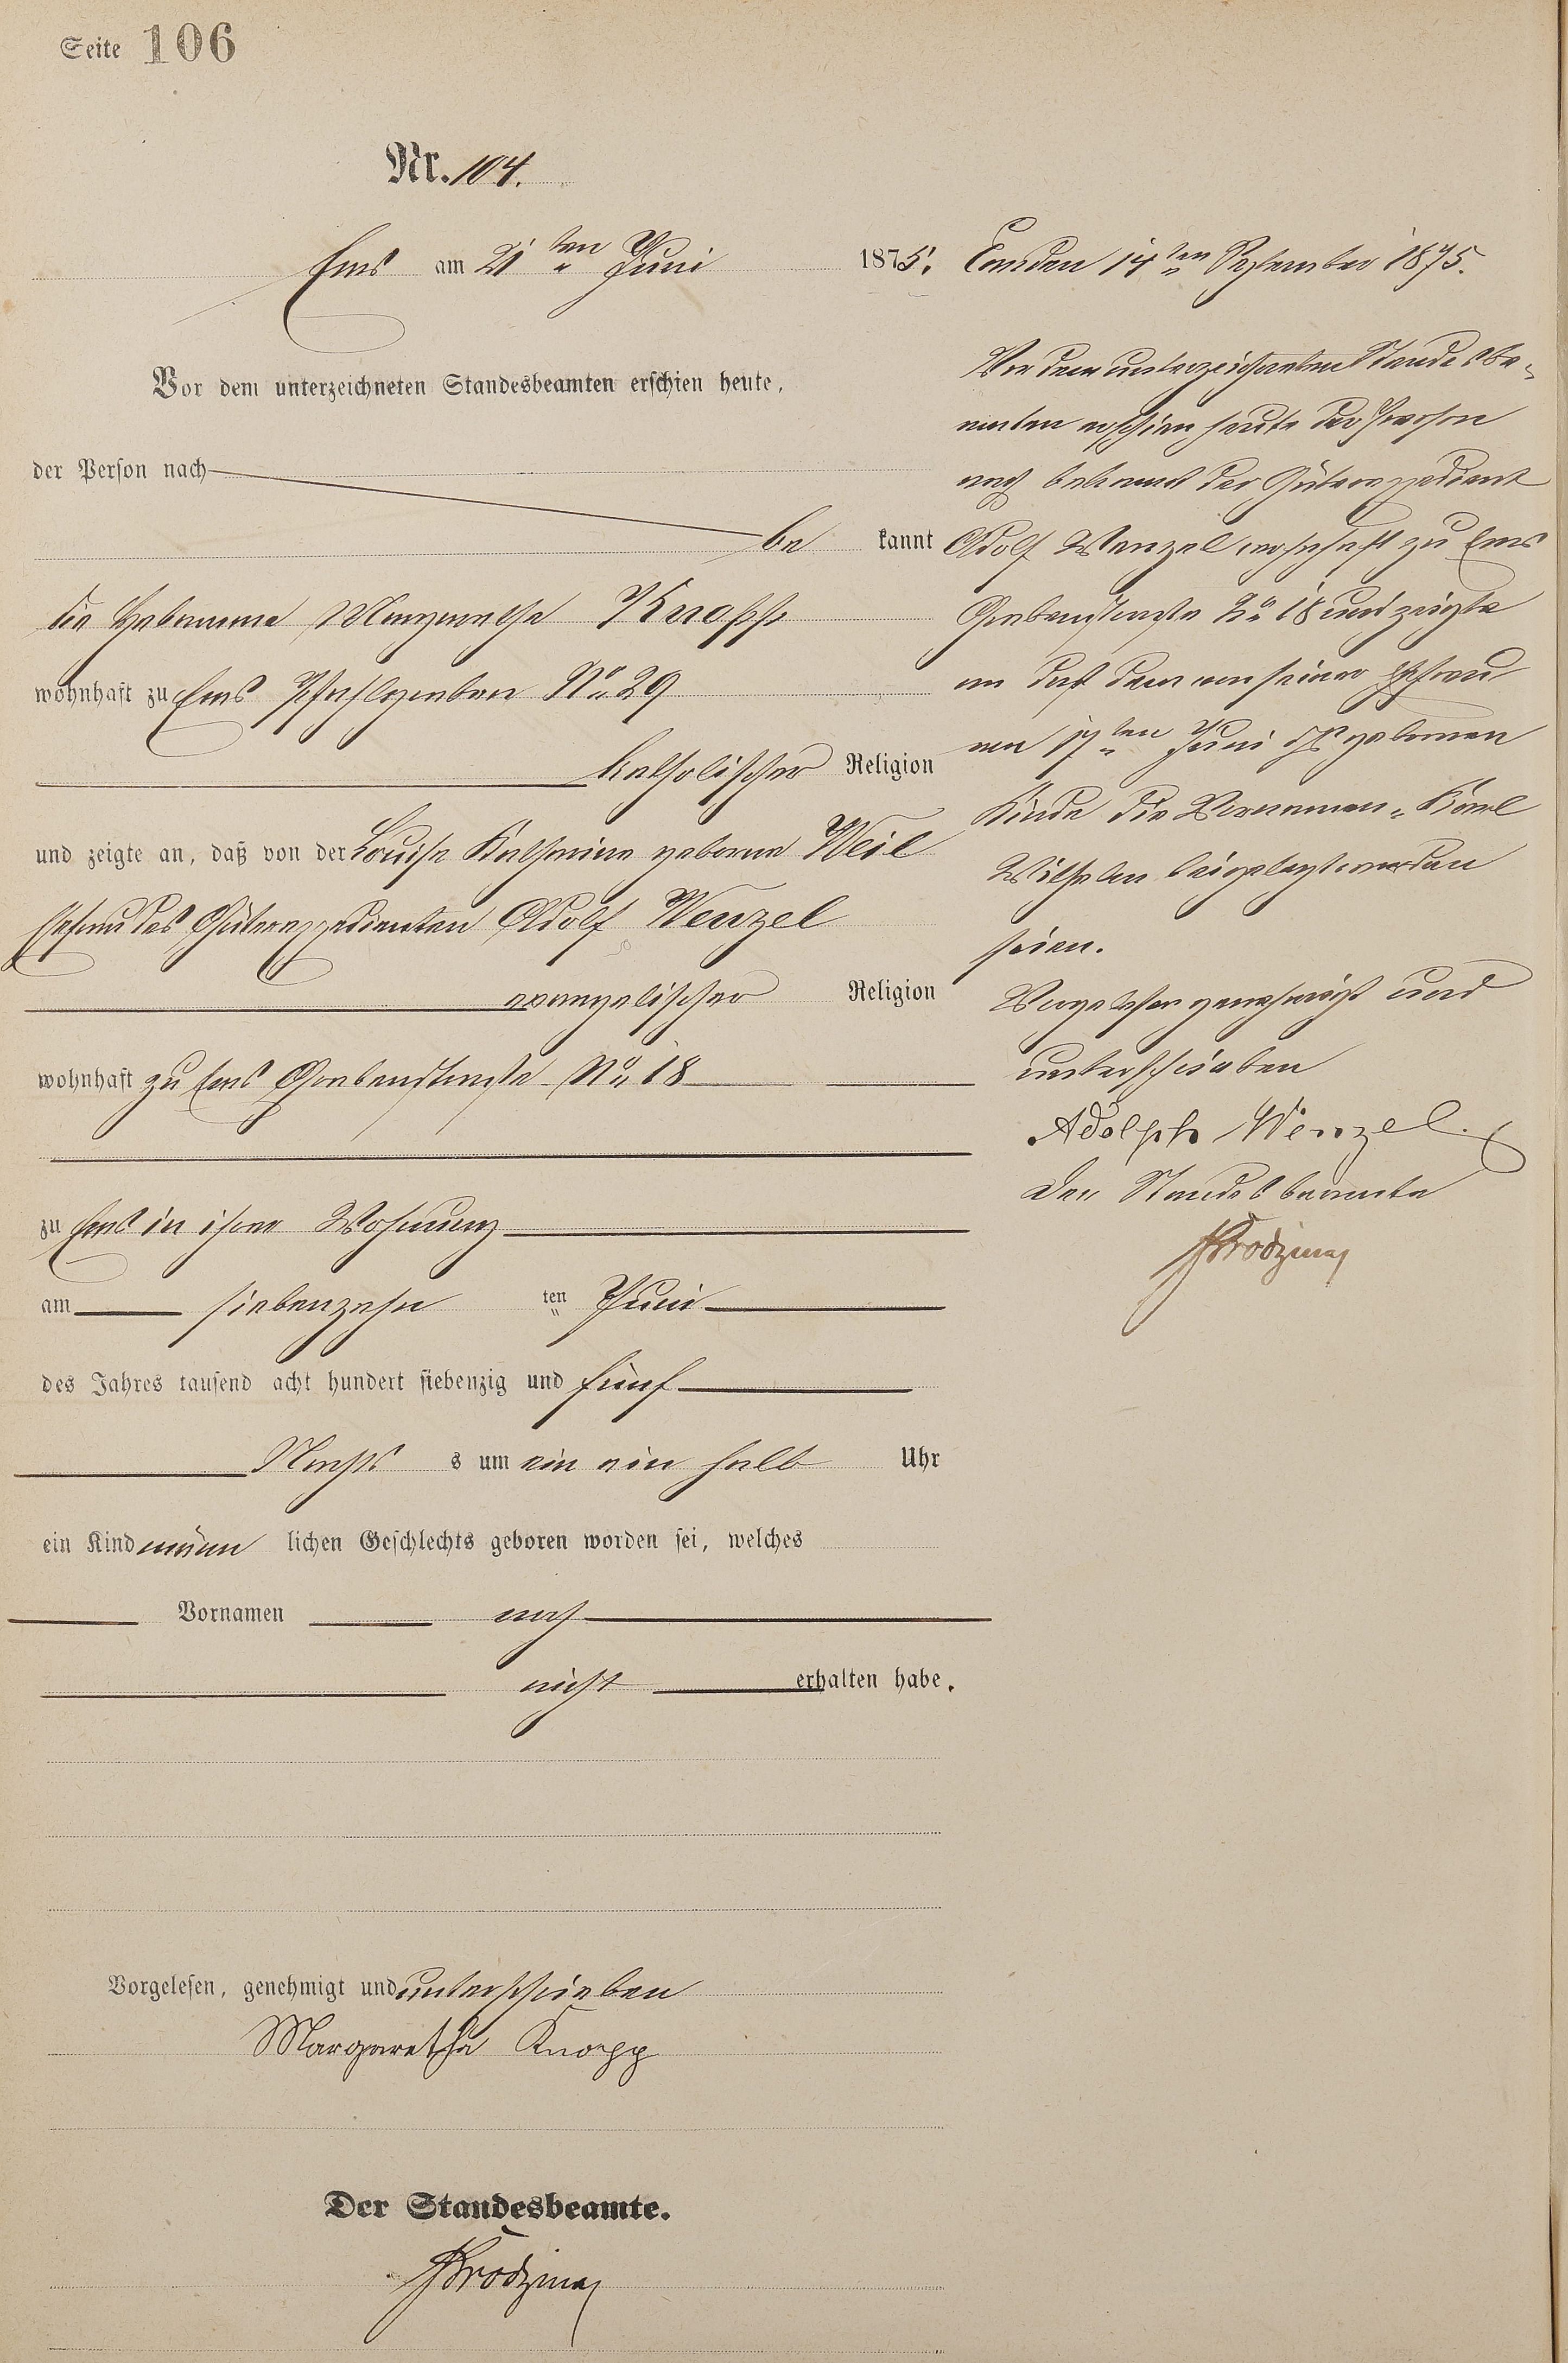 Seite 106
Nr. 104.
Ems am 21ten Juni 1875.
Vor dem unterzeichneten Standesbeamten erschien heute,
der Person nach
be kannt
die Hebamme Margarethe Knopp
wohnhaft zu Ems Pfahlgraben No 29
katholischer Religion
und zeigte an, daß von der Louise Katharina geborne Weil
Ehefrau des Güterexpedienten Adolf Wenzel
evangelischer Religion
wohnhaft zu Ems Grabenstraße No 18
zu Ems in ihrer Wohnung
am siebenzehn ten Juni
des Jahres tausend acht hundert siebenzig und fünf
Nachts s um ein ein halb Uhr
ein Kind männ lichen Geschlechts geboren worden sei, welches
Vornamen noch
nicht erhalten habe.
Vorgelesen, genehmigt und unterschrieben
Margaretha Knopp
Der Standesbeamte.
14ten September 1875.
Vor dem unterzeichneten Standesbe-
amten erschien heute der Person
nach bekannt der Güterexpedient
Adolf Wenzel wohnhaft zu Ems
Grabenstraße No 18 und zeigte
an daß dem von seiner Ehefrau
am 17ten Juni d Js geborenen
Kinde die Vornamen Karl
Wilhelm beigelegt worden
seien.
Vorgelesen genehmigt und
unterschrieben
Adolph Wenzel.
Der Standesbeamte